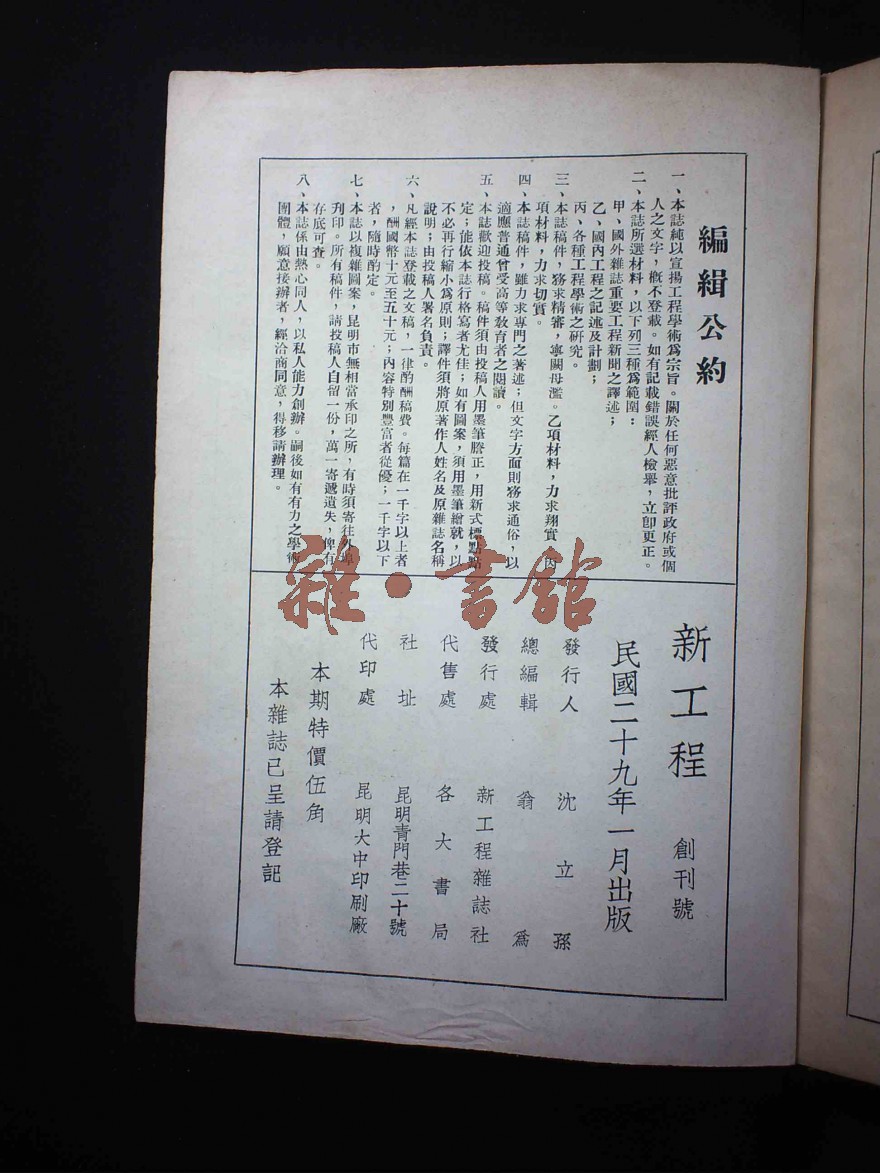 編緝公約
一、本誌純以宣揚工程學術爲宗旨。關於任何惡意批評政府或個
人之文字，槪不登載。如有記載錯誤經人檢舉，立卽更正。
二、本誌所選材料，以下列三種爲範圍：
甲、國外雜誌重要工程新聞之譯述；
乙、國內工程之記述及計劃；
丙、各種工程學術之研究。
三、本誌稿件，務求精審，寧闕毋濫。乙項材料，力求翔實，丙
項材料，力求切實。
四、本誌稿件，雖力求專門之著述；但文字方面則務求通俗，以
適應普通曾受高等敎育者之閱讀。
五、本誌歡迎投稿。稿件須由投稿人用墨筆謄正，用新式標點點
定；能依本誌行格寫者尤佳；如有圖案，須用墨筆繪就，以
不必再行縮小爲原則；譯件須將原著作人姓名及原雜誌名稱
說明；由投稿人署名負責。
六、凡經本誌登載之文稿，一律酌酬稿費。每篇在一千字以上者
，酬國幣十元至五十元；內容特別豐富者從優；一千字以下
者，隨時酌定。
七、本誌以複雜圖案，昆明市無相當承印之所，有時須寄往外埠
刋印。所有稿件，請投稿人自留一份，萬一寄遞遺失，俾有
存底可查。
八、本誌係由熱心同人，以私人能力創辦。嗣後如有有力之學術
團體，願意接辦者，經洽商同意，得移請辦理。
新工程 創刊號
民國二十九年一月出版
發行人 沈立孫
總編輯 翁爲
發行處 新工程雜誌社
代售處 各大書局
社址 昆明青門巷二十號
代印處 昆明大中印刷廠
本期特價伍角
本雜誌已呈請登記
雜·書舘